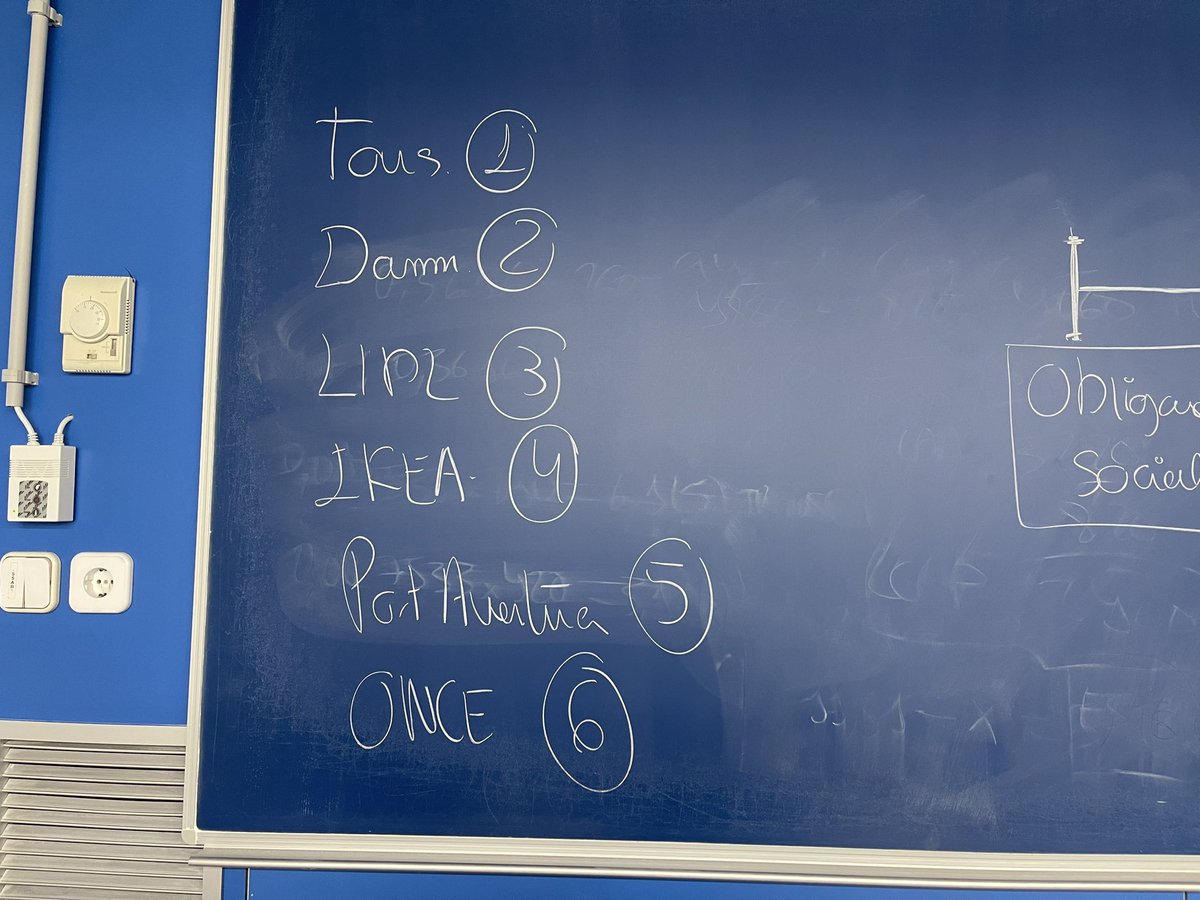 Tous. 1
Damm. 2
LIDL 3
IKEA. 4
Port Aventura 5
ONCE 6
Social